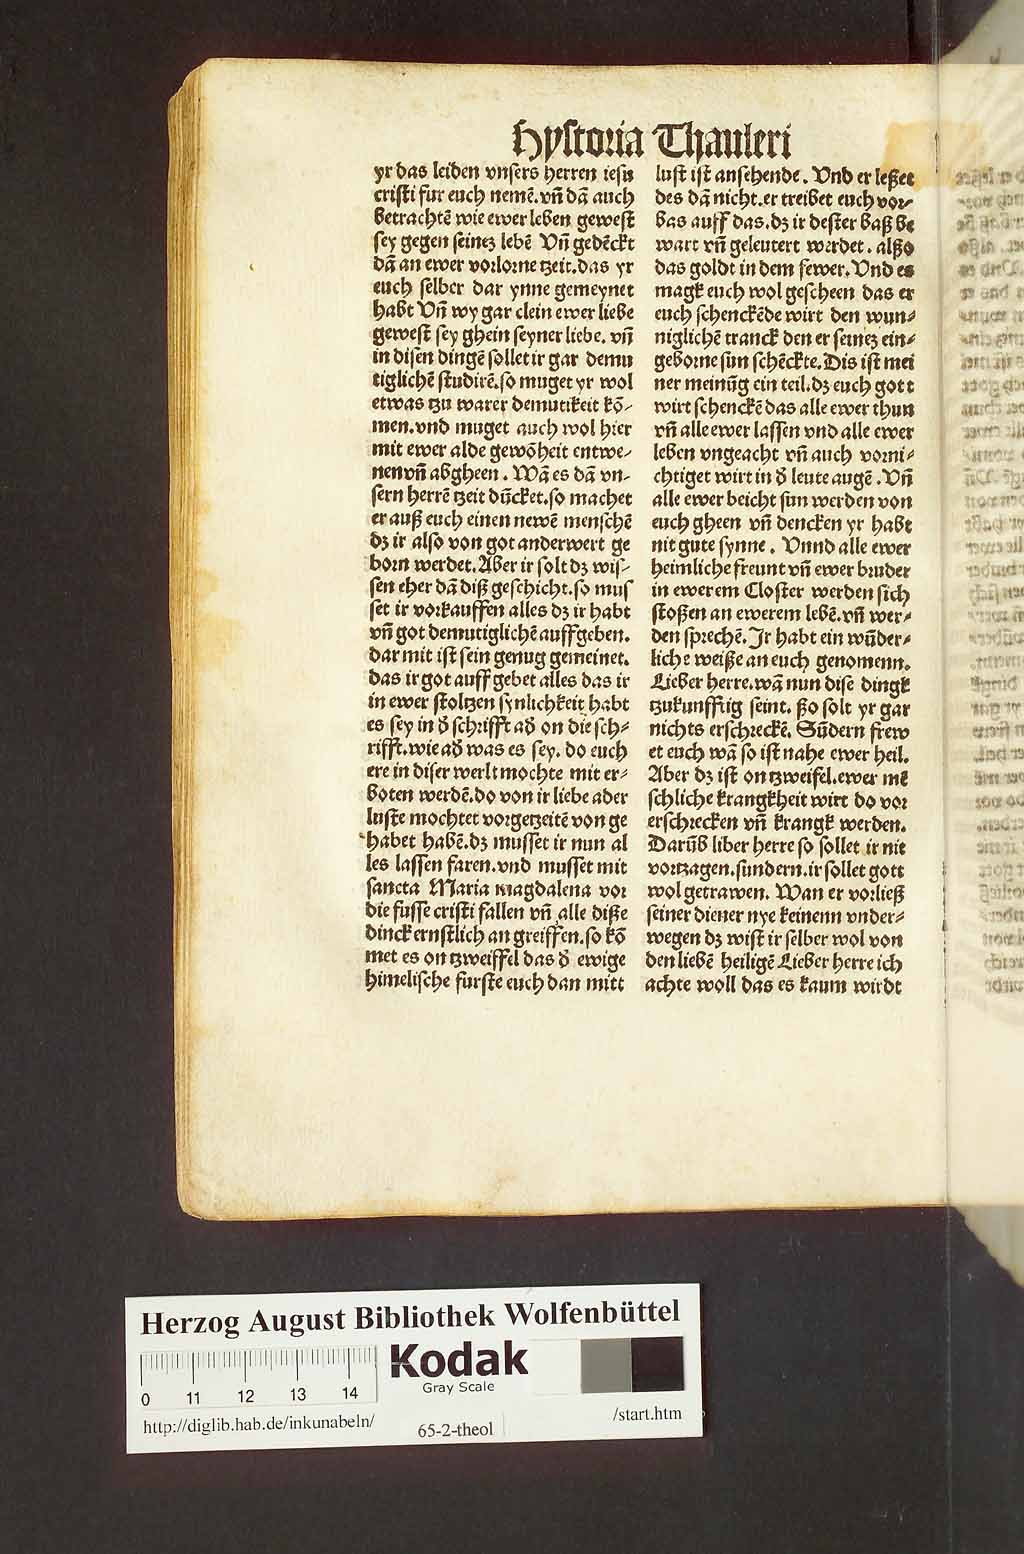 Hystoria Thauleri
yr das leiden vnsers herren iesu
cristi fur euch nemē. vñ dā auch
betrachtē wie ewer leben gewest
sey gegen seinez lebē Vñ gedēckt
dā an ewer vorlorne tzeit. das yr
euch selber dar ynne gemeynet
habt Vñ wy gar clein ewer liebe
gewest sey ghein seyner liebe. vñ
in disen dingē sollet ir gar demu
tiglichē studirē. so muget yr wol
etwas tzu warer demutikeit kō-
men. vnd muget auch wol hier
mit ewer alde gewōheit entwe-
nen vñ abgheen. Wā es dā vn-
sern herrē tzeit dūcket. so machet
er auß euch einen newē menschē
dz ir also von got anderwert ge
born werdet. Aber ir solt dz wis-
sen eher dā diß geschicht. so mus
set ir vorkauffen alles dz ir habt
vñ got demutiglichē auffgeben.
dar mit ist sein genug gemeinet.
das ir got auff gebet alles das ir
in ewer stoltzen synlichkeit habt
es sey in d̄ schrifft ad̄ on die sch-
rifft. wie ad̄ was es sey. do euch
ere in diser werlt mochte mit er-
boten werdē. do von ir liebe ader
luste mochtet vorgetzeitē von ge
habet habē. dz musset ir nun al
les lassen faren. vnd musset mit
sancta Maria magdalena vor
die fusse cristi fallen vñ alle diße
dinck ernstlich an greiffen. so kō
met es on tzweiffel das d̄ ewige
himelische furste euch dan mitt
lust ist ansehende. Vnd er leßet
des dā nicht. er treibet euch vor-
bas auff das. dz ir dester baß be
wart vñ geleutert werdet. alßo
das goldt in dem fewer. Vnd es
magk euch wol gescheen das er
euch schenckēde wirt den wun-
niglichē tranck den er seinez ein-
geborne sun schēckte. Dis ist mei
ner meinūg ein teil. dz euch gott
wirt schenckē das alle ewer thun
vñ alle ewer lassen vnd alle ewer
leben vngeacht vñ auch vorni-
chtiget wirt in d̄ leute augē. Vñ
alle ewer beicht sun werden von
euch gheen vñ dencken yr habt
nit gute synne. Vnnd alle ewer
heimliche freunt vñ ewer bruder
in ewerem Closter werden sich
stoßen an ewerem lebē. vñ wer-
den sprechē. Ir habt ein wūder-
liche weiße an euch genomenn.
Lieber herre. wā nun dise dingk
tzukunfftig seint. ßo solt yr gar
nichts erschreckē. Sūdern frew
et euch wā so ist nahe ewer heil.
Aber dz ist on tzweifel. ewer mē
schliche krangkheit wirt do vor
erschrecken vñ krangk werden.
Darūb liber herre so sollet ir nit
vortzagen. sundern. ir sollet gott
wol getrawen. Wan er vorließ
seiner diener nye keinenn vnder-
wegen dz wist ir selber wol von
den liebē heiligē Lieber herre ich
achte woll das es kaum wirdt
Herzog August Bibliothek Wolfenbüttel
Kodak
Gray Scale
0 11 12 13 14
http://diglib.hab.de/inkunabeln/
65-2-theol
/start.htm